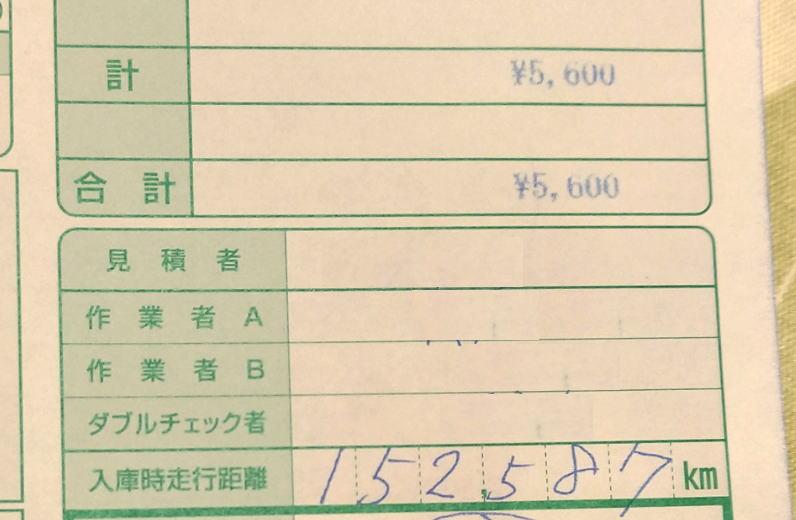 計 ¥5,600
合計 ¥5,600
見積者
作業者A
作業者B
ダブルチェック者
入庫時走行距離 152,587 km